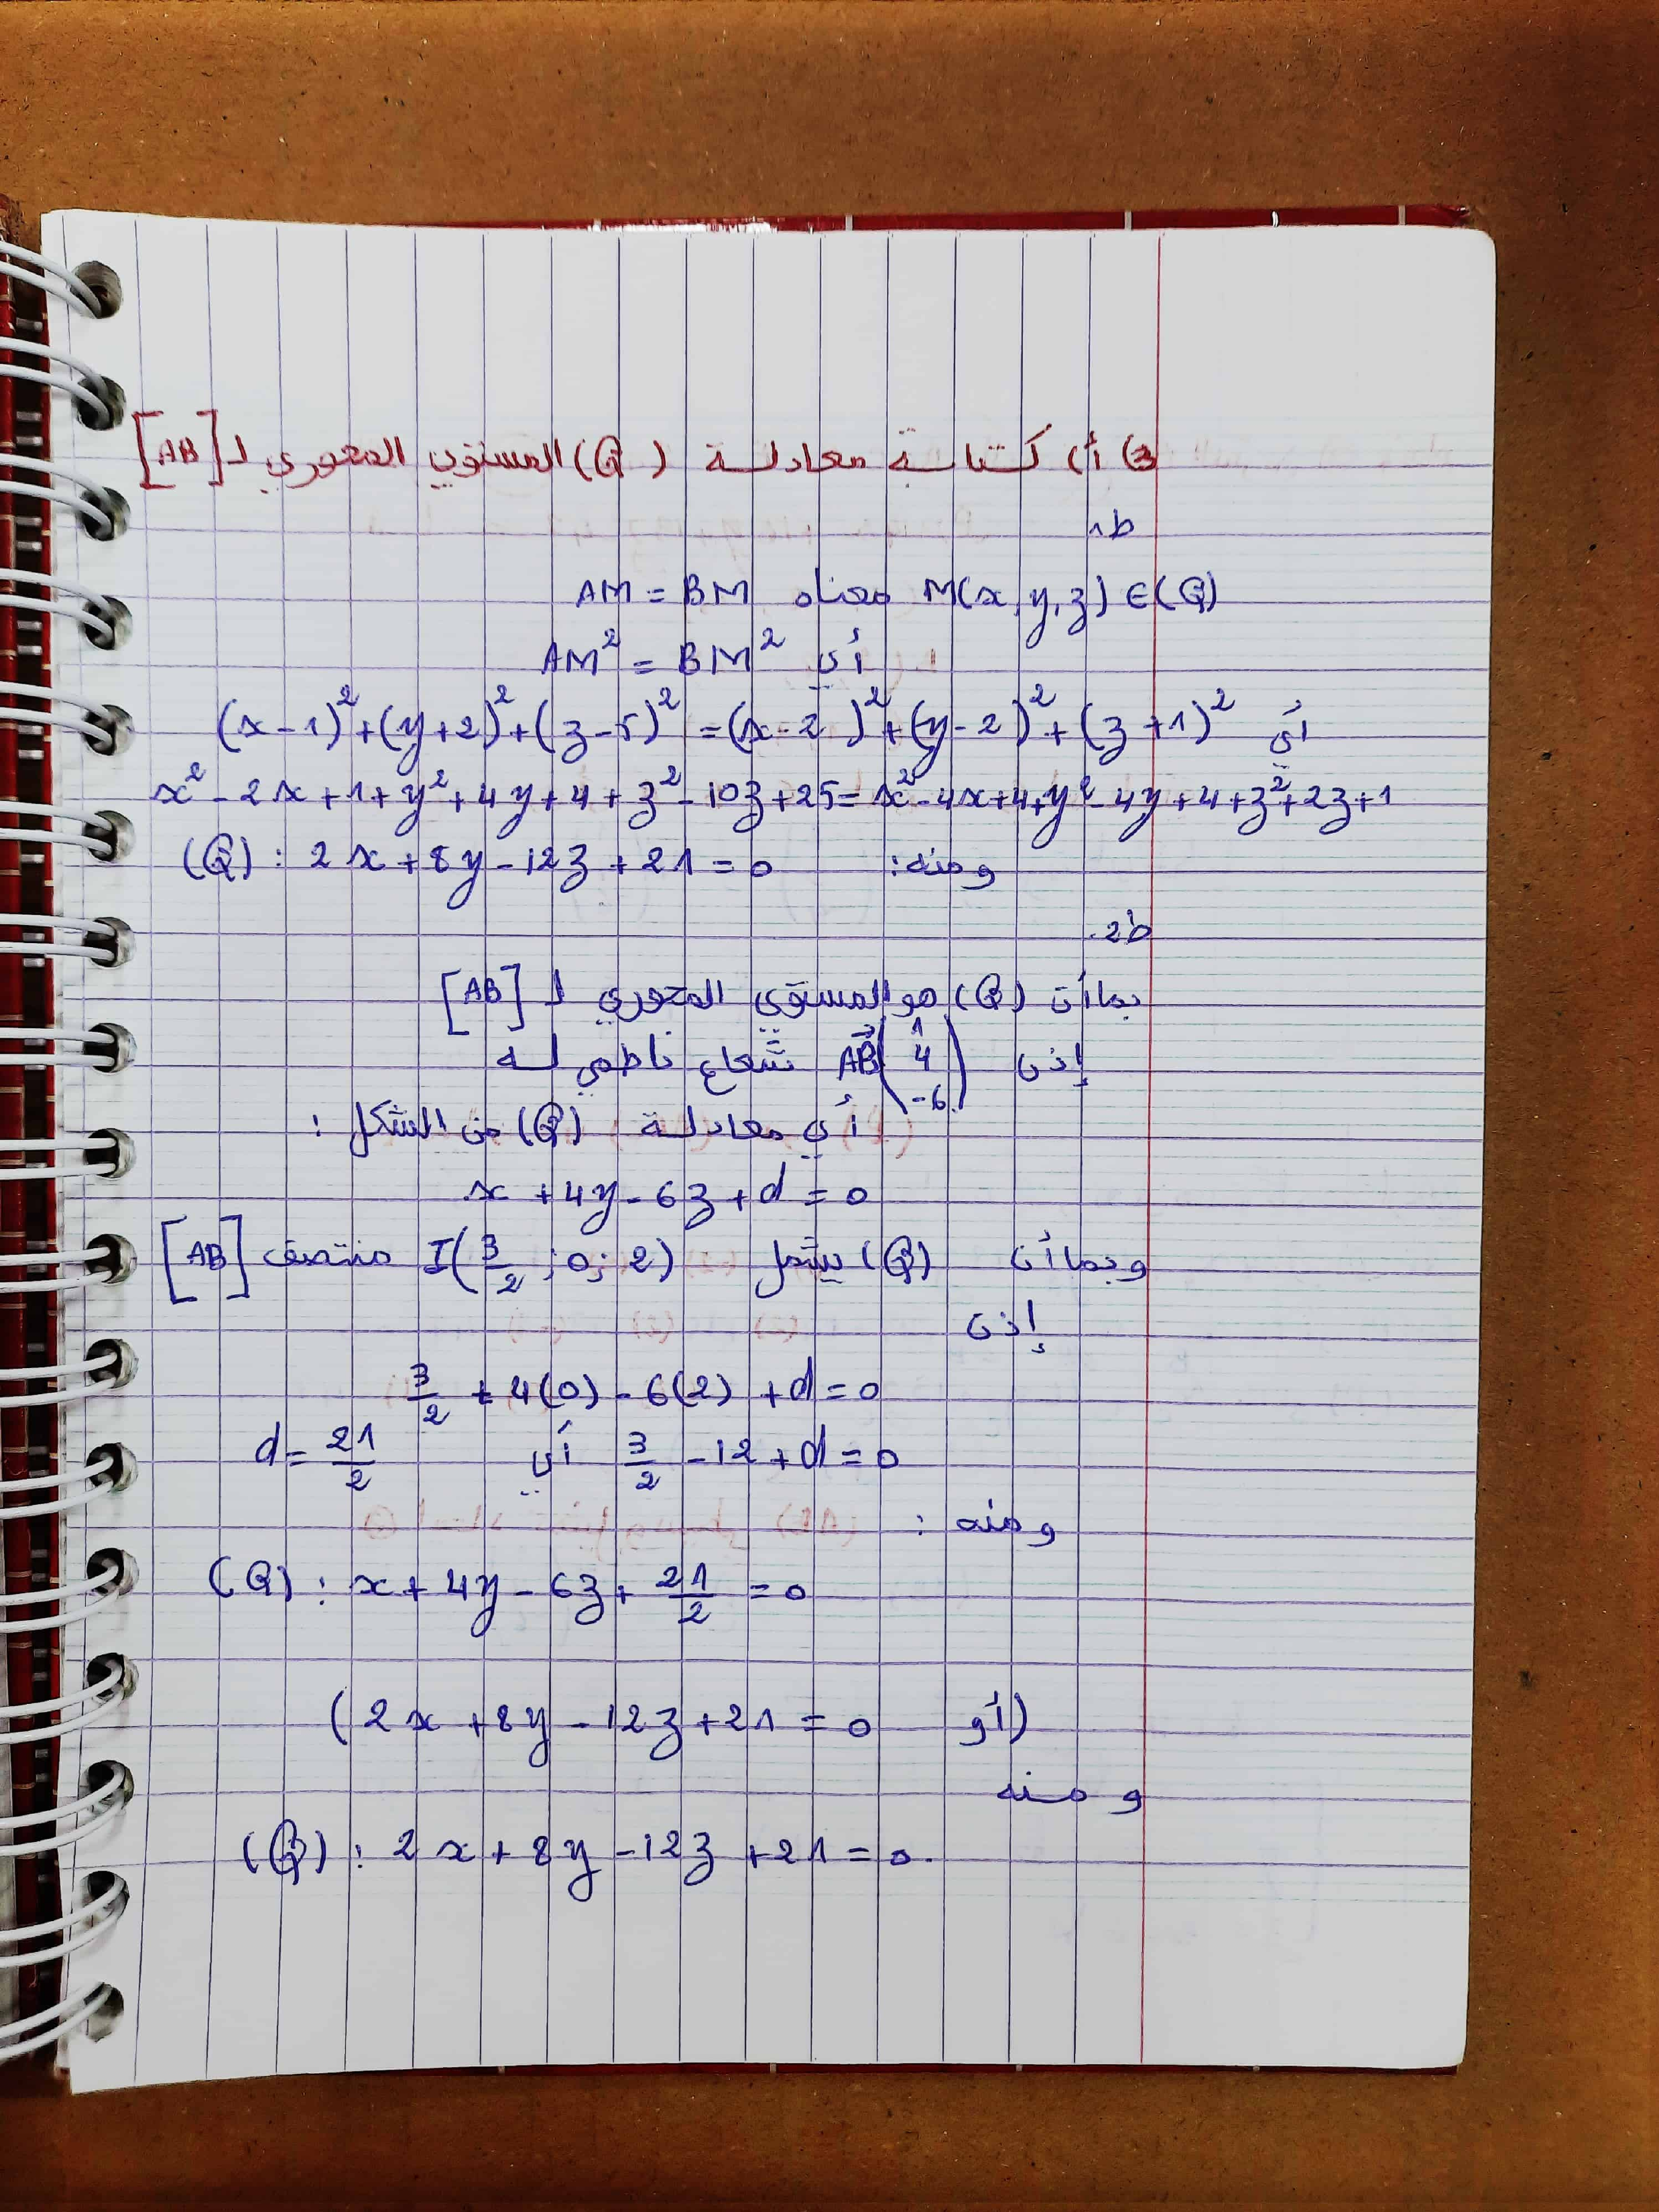 3) أ) كتابة معادلة (Q) المستوي المحوري لـ [AB]
ط1
M(x,y,z) ∈ (Q) معناه AM = BM
أي AM² = BM²
أي (x-1)²+(y+2)²+(z-5)² = (x-2)²+(y-2)²+(z+1)²
x²-2x+1+y²+4y+4+z²-10z+25 = x²-4x+4+y²-4y+4+z²+2z+1
ومنه: (Q): 2x+8y-12z+21=0
ط2.
بما أن (Q) هو المستوي المحوري لـ [AB]
إذن AB⃗(1 4 -6) شعاع ناظمي له
أي معادلة (Q) من الشكل:
x+4y-6z+d=0
وبما أن (Q) يشمل I(3/2;0;2) منتصف [AB]
إذن
3/2+4(0)-6(2)+d=0
3/2-12+d=0 أي d=21/2
ومنه:
(Q): x+4y-6z+21/2=0
(أو 2x+8y-12z+21=0)
ومنه
(Q): 2x+8y-12z+21=0.